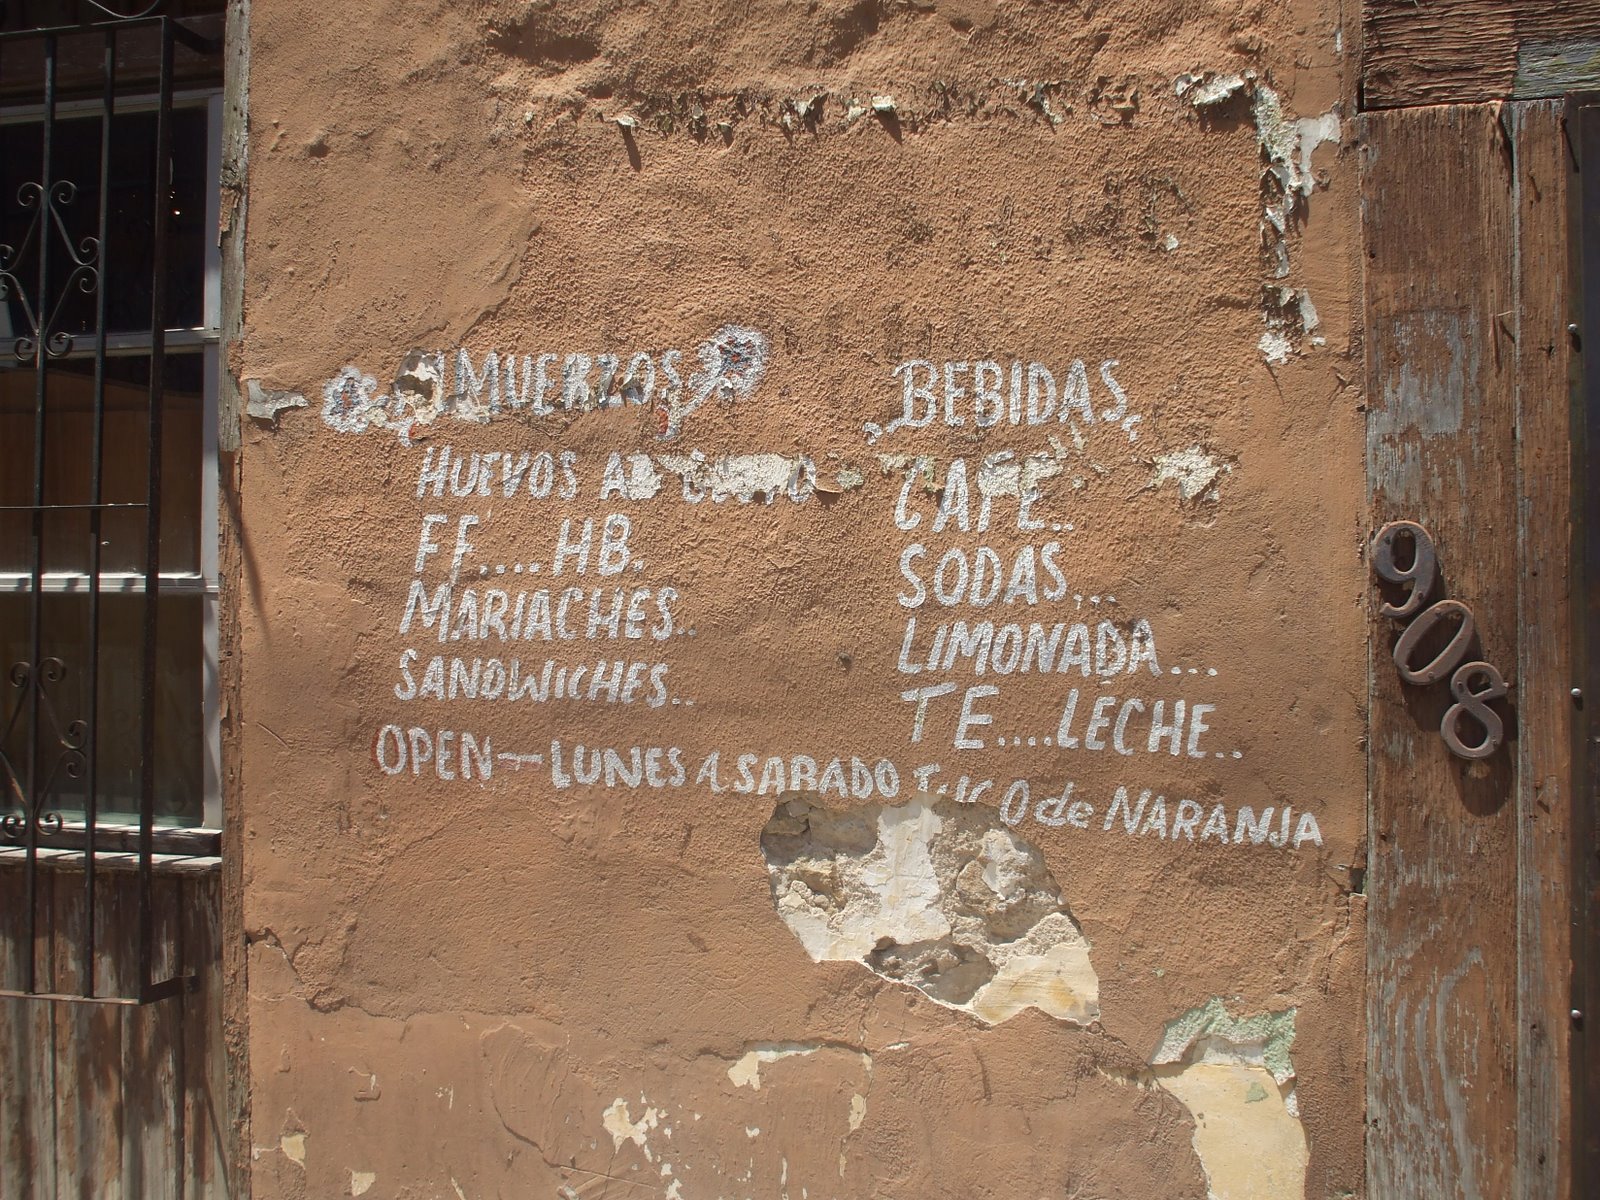 ALMUERZOS
HUEVOS AL GUSTO
FF....HB.
MARIACHES..
SANDWICHES..
OPEN—LUNES A SABADO
BEBIDAS
CAFE..
SODAS...
LIMONADA...
TE....LECHE..
JUGO de NARANJA
908